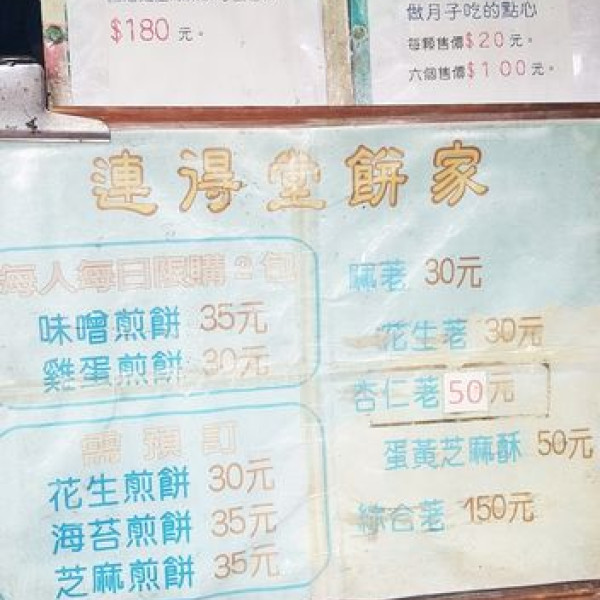 $180元。
做月子吃的點心
每顆售價$20元。
六個售價$100元。
連得堂餅家
每人每日限購2包
味噌煎餅 35元
雞蛋煎餅 30元
需預訂
花生煎餅 30元
海苔煎餅 35元
芝麻煎餅 35元
荖 30元
花生荖 30元
杏仁荖 50元
蛋黃芝麻酥 50元
綜合荖 150元